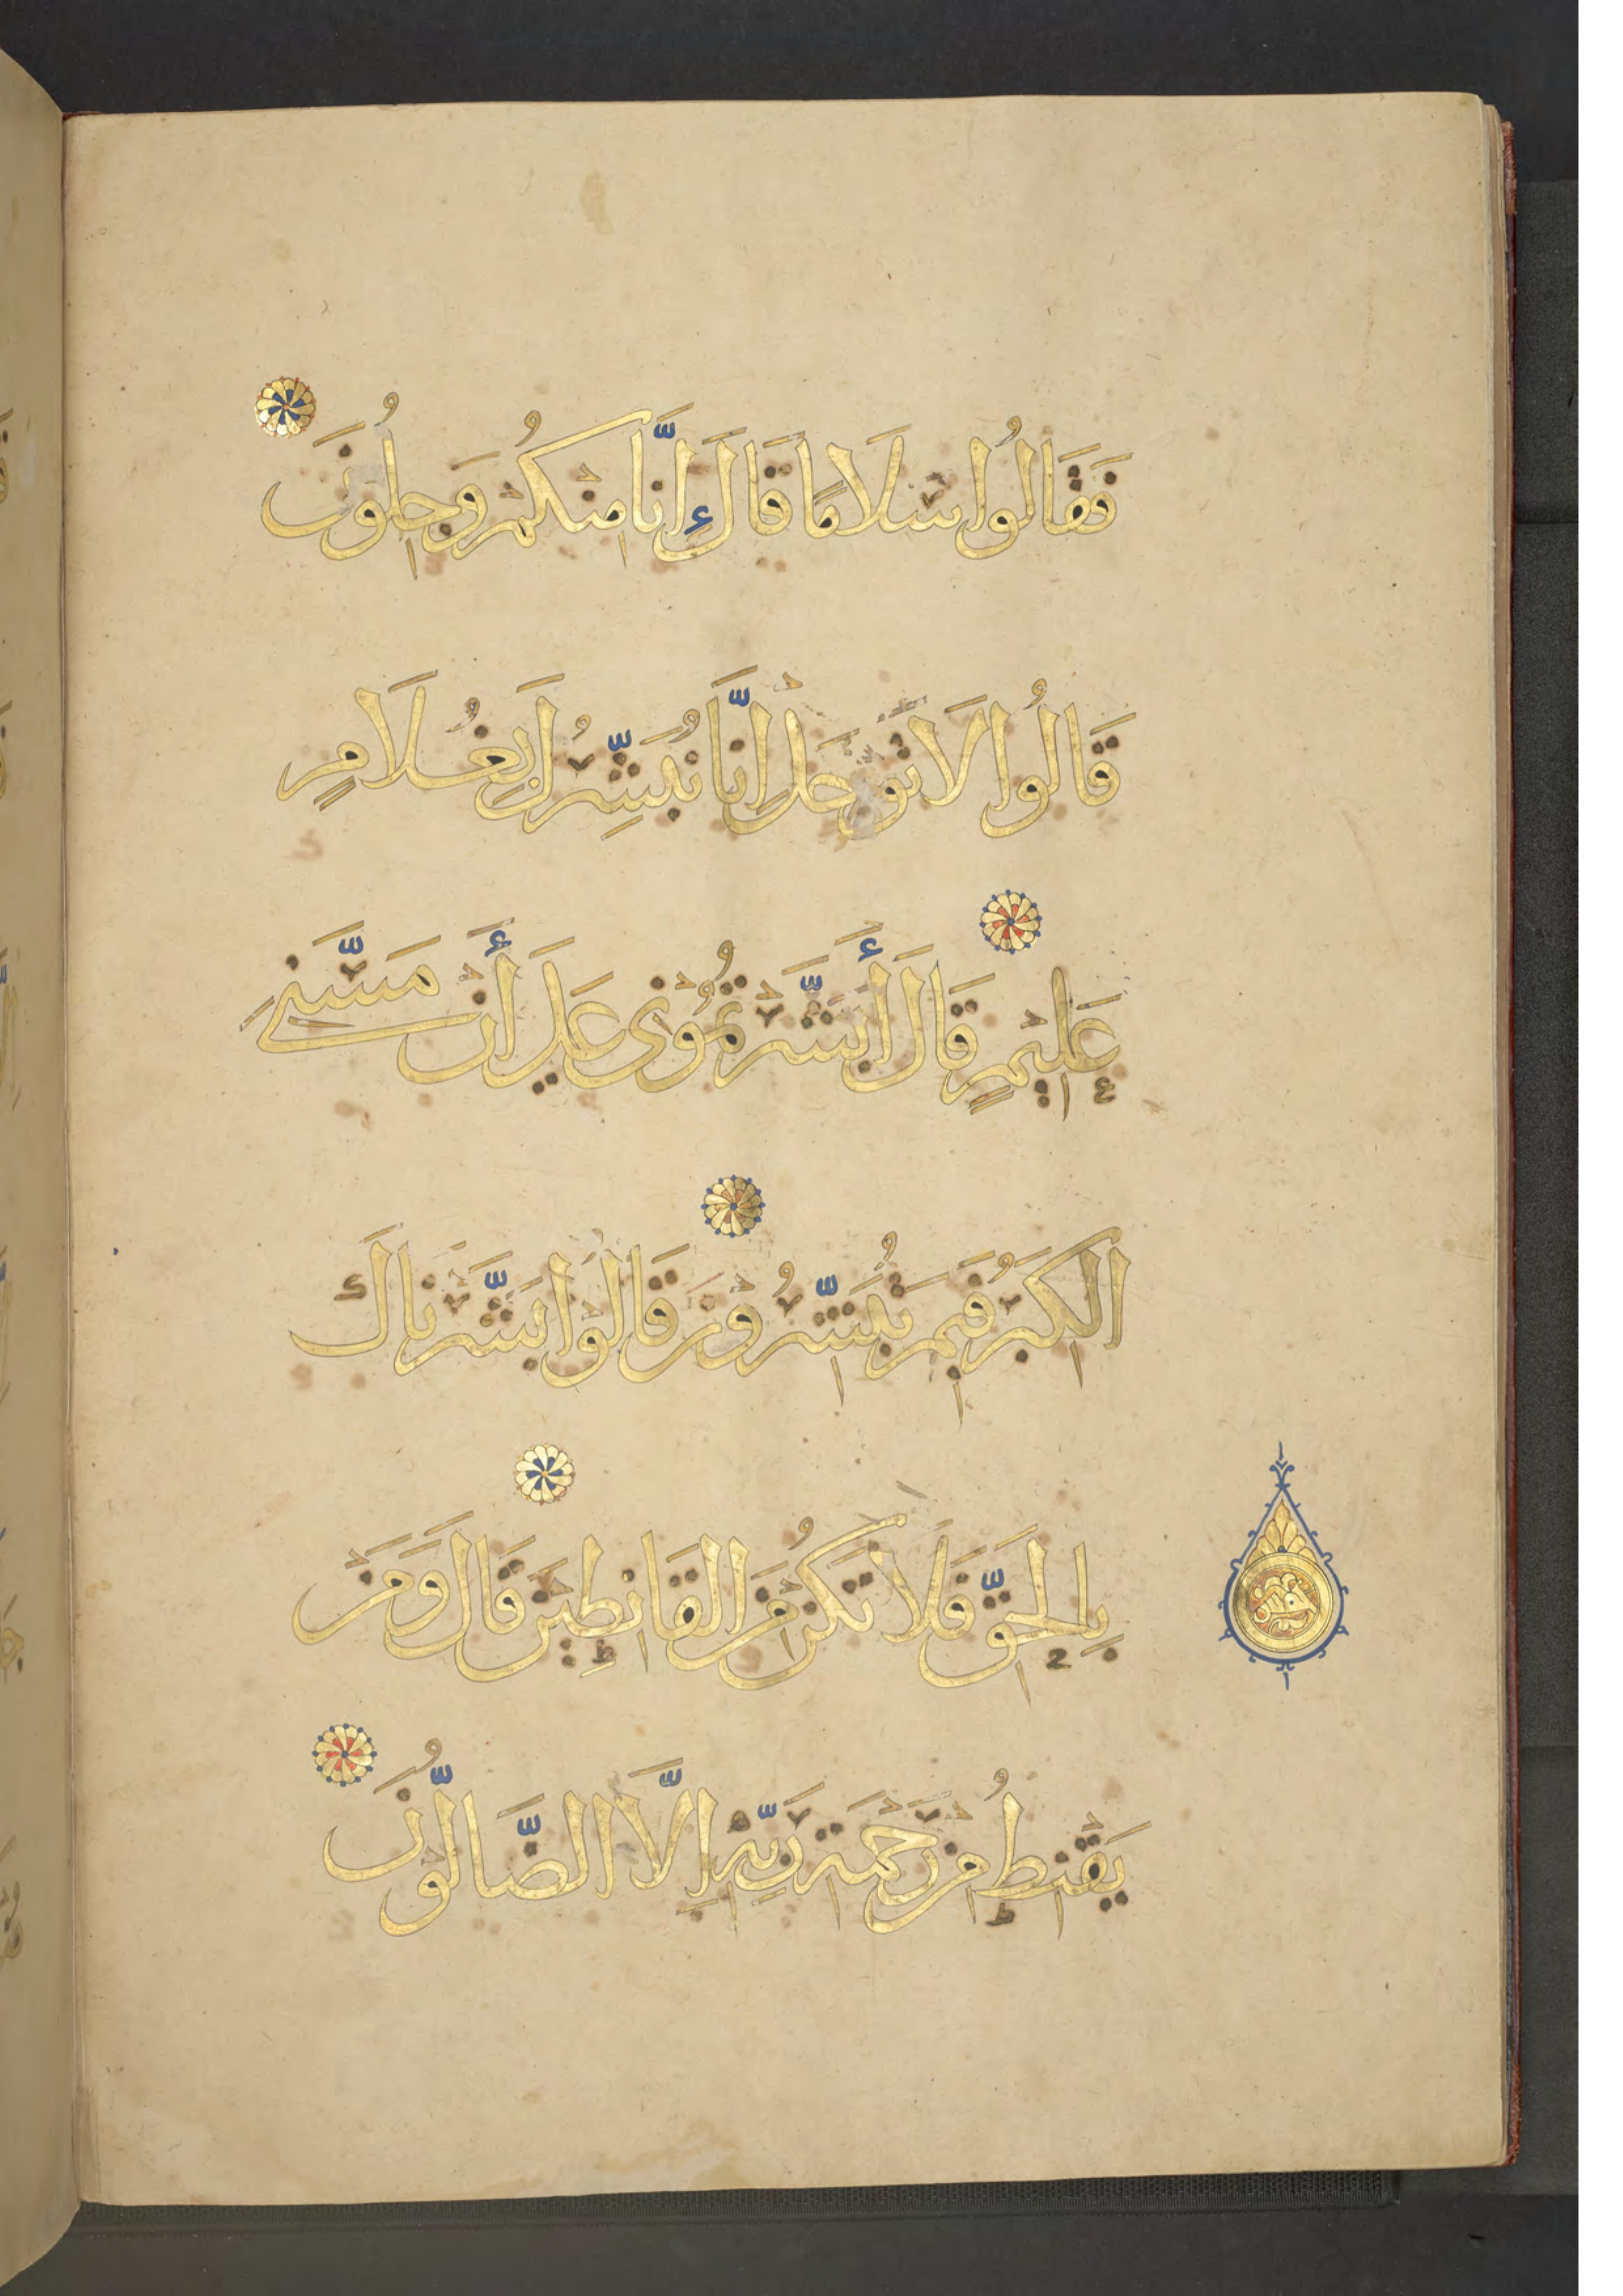 فَقَالُوا سَلَامًا قَالَ إِنَّا مِنْكُمْ وَجِلُونَ
قَالُوا لَا تَوْجَلْ إِنَّا نُبَشِّرُكَ بِغُلَامٍ
عَلِيمٍ قَالَ أَبَشَّرْتُمُونِى عَلَى أَنْ مَسَّنِيَ
الْكِبَرُ فَبِمَ تُبَشِّرُونَ قَالُوا بَشَّرْنَاكَ
بِالْحَقِّ فَلَا تَكُنْ مِنَ الْقَانِطِينَ قَالَ وَمَنْ
يَقْنَطُ مِنْ رَحْمَةِ رَبِّهِ إِلَّا الضَّالُّونَ